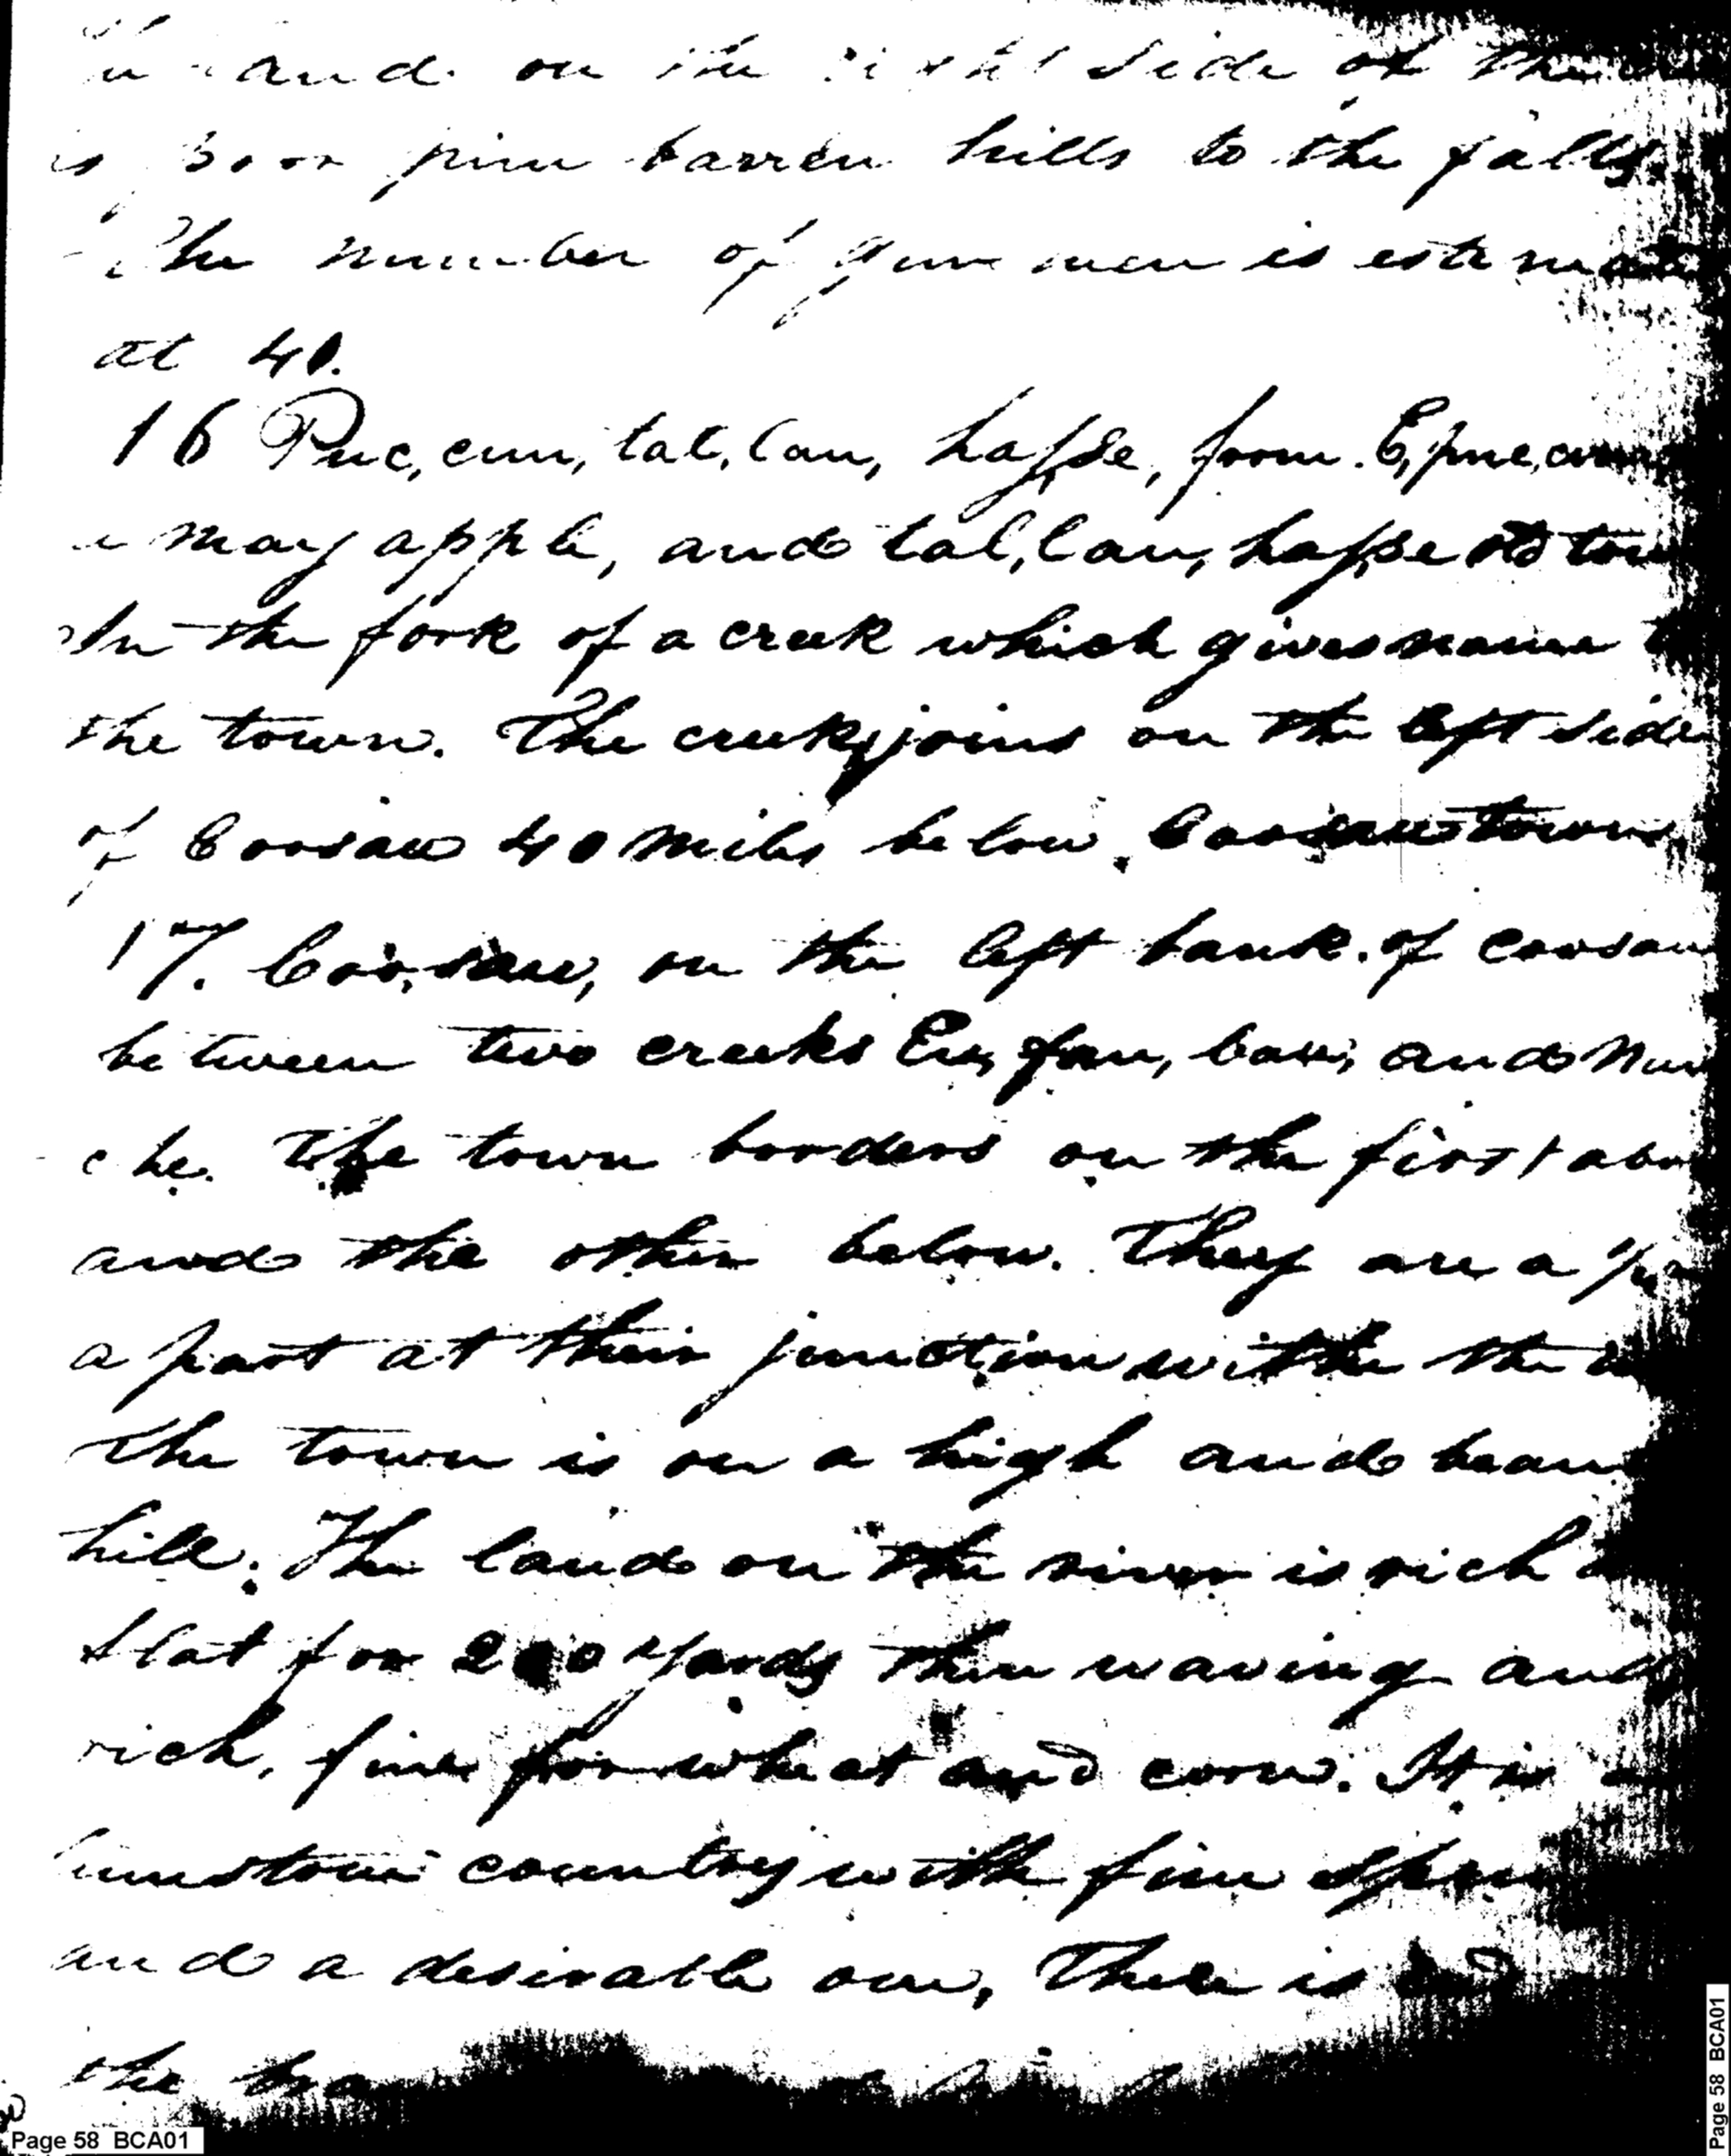 land on the right side of the
is poor pine barren hills to the falls.
The number of gun men is estimate
at 40.
16 Puc,cun,tal,lau, hasse, from E,puc,cun
a may apple, and tal,lau, hasse old tow
In the fork of a creek which gives name
the town. The creek joins on the left side
of Coosau 40 miles below. Coosau town
17. Coo,sau, on the left bank of coosau
between two creeks Eu, fau, lau, and Nau
che. The town borders on the first abo
and the other below. They are a
apart at their junction with the
the town is on a high and beau
hill. The land on the river is rich
flat for 200 Yards then waving and
rich, fine for wheat and corn. It is
limestone country with fine spri
and a desirable one, There is
the
Page 58 BCA01
Page 58 BCA01